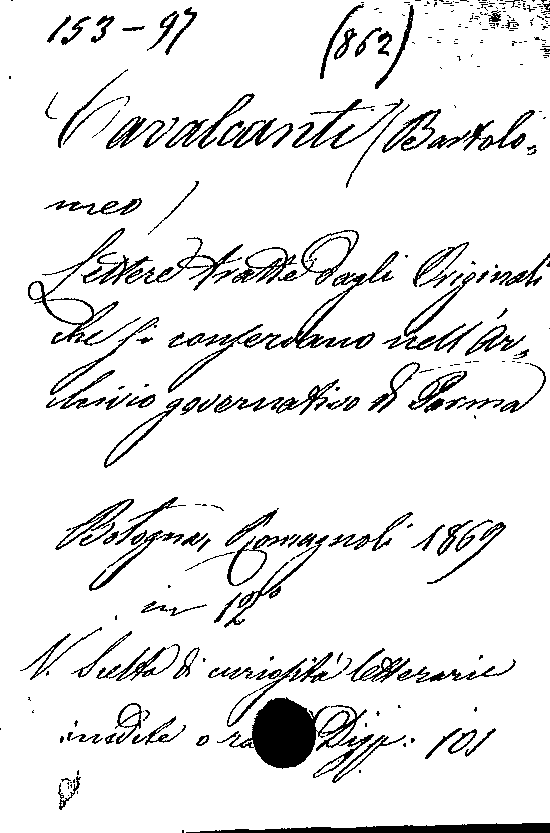 153-97 (862)
Cavalcanti (Bartolo-
meo)
Lettere tratte dagli Originali
che si conservano nell'Ar-
chivio governativo di Parma
Bologna, Romagnoli 1869
in 12º
V. Scelta di curiosità letterarie
inedite o ra Disp. 101